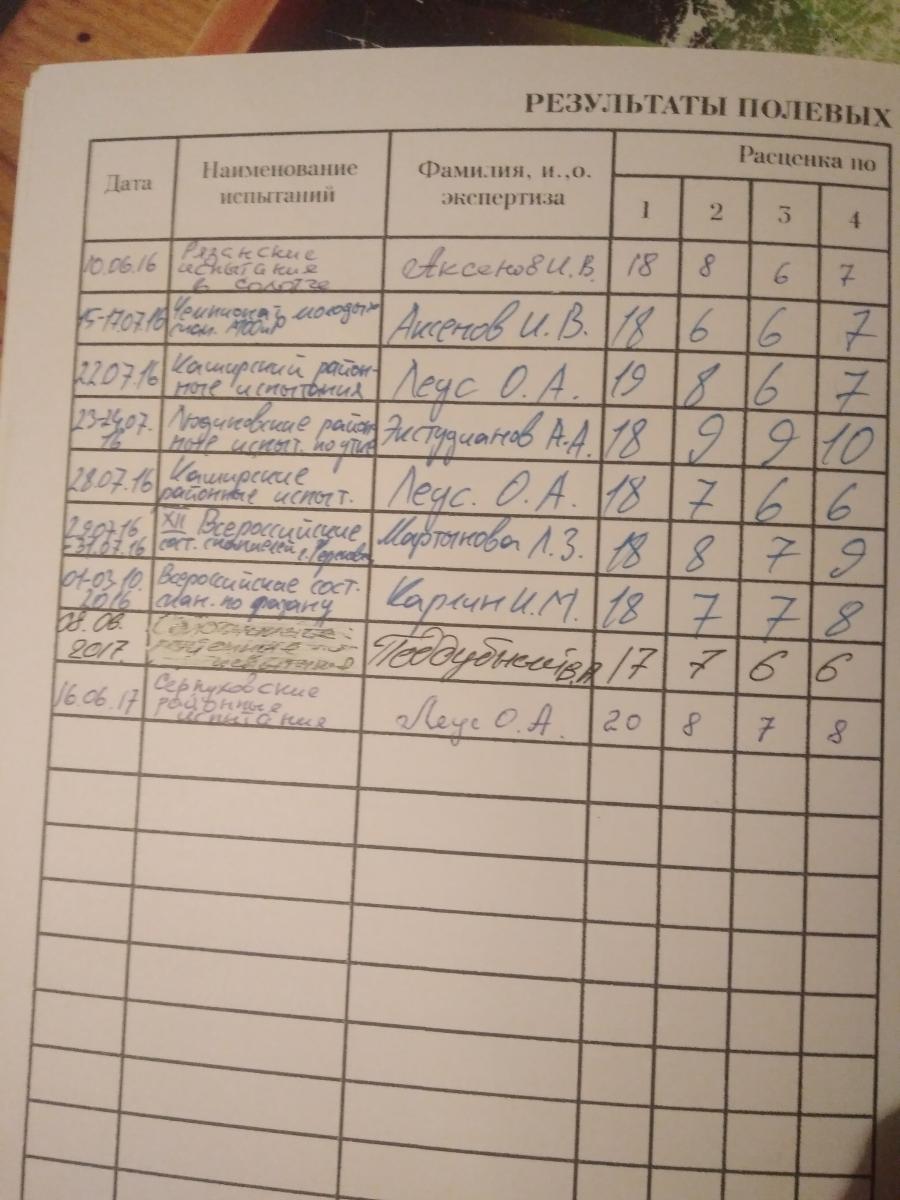 РЕЗУЛЬТАТЫ ПОЛЕВЫХ
Дата Наименование испытаний Фамилия, и.,о. экспертиза Расценка по
1 2 3 4
10.06.16 Рязанские испытание в Солотче Аксенов И.В. 18 8 6 7
15-17.07.16 Чемпионат молодых Аксенов И.В. 18 6 6 7
22.07.16 Каширский районные испытания Леус О.А. 19 8 6 7
23-24.07.16 Людиновские районные испыт. по утке Экстудианов А.А. 18 9 9 10
28.07.16 Каширские районные испыт. Леус. О.А. 18 7 6 6
29.07.16-31.07.16 XII Всероссийские сост. спаниелей Мартынова Л.З. 18 8 7 9
01-03.10.2016 Всероссийские сост. спан. по фазану Карлин И.М. 18 7 7 8
08.06.2017. районные испытания Поддубный В.А 17 7 6 6
16.06.17 Серпуховские районные испытания Леус О.А. 20 8 7 8